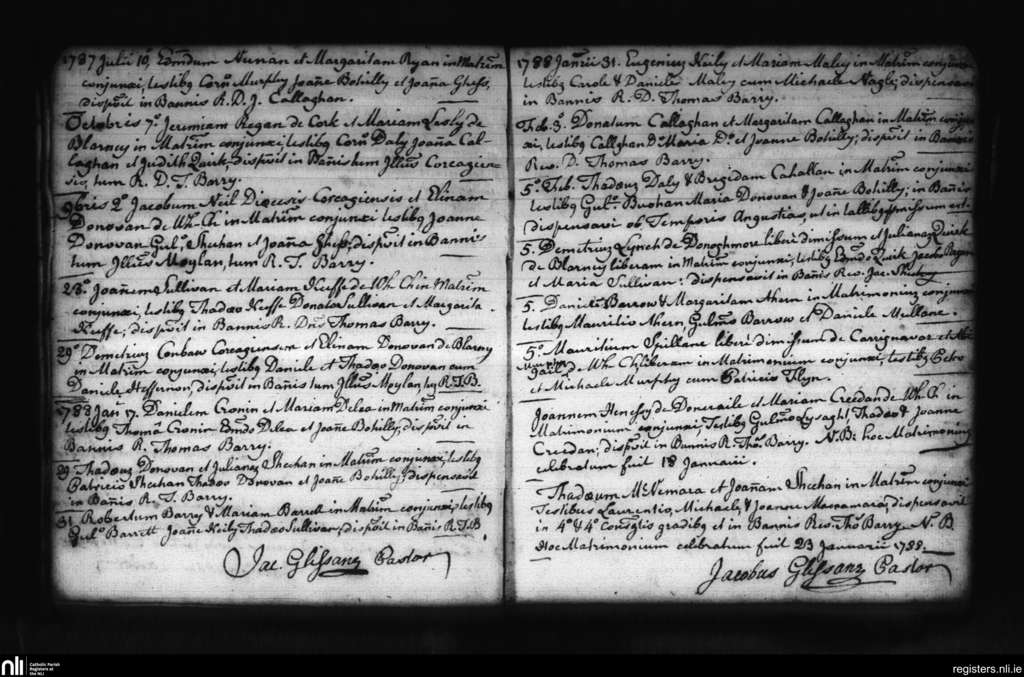 1787 Julii 10. Edmdum Nunan et Margaritam Ryan in Matrim
conjunxi, testibq Corn Murphy Joañe Bohilly et Joaña
dispsvit in Bannis R. D. J. Callaghan.
Octobris 7º. Jeremiam Regan de Cork et Mariam Lesly de
Blarney in Matrim conjunxi, testibq Corn Daly Joaña Cal-
laghan et Judith Quirk, dispsvit in Bañis tum Illmus Corcagien-
sis, tum R. D. T. Barry.
9bris 2º Jacobum Neil Diocesis Corcagiensis et Elinam
Donovan de Wh. Ch in Matrim conjunxi testibq Joanne
Donovan Gulº Shehan et Joaña dispsvit in Bannis
tum Illmus Moylan, tum R. T. Barry.
28º. Joañem Sullivan et Mariam Keeffe de Wh. Ch in Matrim
conjunxi, testibq Thadæo Keeffe Donato Sullivan et Margarita
Keeffe; dispsvit in Bannis R. Dnus Thomas Barry.
29º. Demetrium Corcagiensem et Elinam Donovan de Blarny
in Matrim conjunxi, testibq Daniele et Thadæo Donovan cum
Daniele Heffernon, dispsvit in Bañis tum Illmus Moylan, tum R.T.B.
1788 Jan 17. Danielem Cronin et Mariam Delea in Matrim conjunxi
testibq Thoma Cronin Edmdo Delea et Joañe Bohilly, dispsvit in
Bannis R. Thomas Barry.
29. Thadæum Donovan et Julianam Shechan in Matrim conjunxi, testibq
Patricio Shechan Thadæo Donovan et Joañe Bohilly; dispensavit
in Bañis R. T. Barry.
31. Robertum Barry & Mariam Barrett in Matrim conjunxi, testibq
Gulº Barrett Joañe Keily Thadæo Sullivan, dispsvit in Bañis R.T.B
Jac. Glissanz Pastor
1788 Janrii 31. Eugenium Keily et Mariam Maley in Matrim conjunxi
testibq Carolo & Daniele Maley cum Michaele Nagle; dispensavit
in Bannis R. D. Thomas Barry.
Feb. 3. Donatum Callaghan et Margaritam Callaghan in Matrim conjun
xi, testibq Callghan D. Maria Dº. et Joanne Bohilly; dispsvit in Bannis
Revs. D. Thomas Barry.
5º. Feb. Thadæum Daly & Brigidam Cahallan in Matrim conjunxi
testibq Gulº. Maria Donovan & Joañe Bohilly; in Bañis
dispensavi ob Temporis Angustias, ut in talibq
5. Demetrium Lynch de Donoghmore liberi dimissum et Julianam Quirk
de Blarney liberam in Matrim conjunxi, testibq Edmdo Quirk Jacobo
et Maria Sullivan: dispensavit in Bañis Revs. Jac.
5. Danielem Barrow & Margaritam Ahern in Matrimonium conjunxi
testibq Mauritio Ahern, Gulmo Barrow et Daniele Mullane.
5º. Mauritium Spillane liberi dimissum de Carrignavar et
de Wh. Ch liberam in Matrimonium conjunxi, testibq Petro
et Michaele Murphy cum Patricio Flyn.
Joannem Henesy de Doneraile et Mariam Creedan de Wh. Ch in
Matrimonium conjunxi, Testibq Gulmo Lysaght Thadæo & Joanne
Creedan; dispsvit in Bannis R. Ths. Barry. N.B: hoc Matrimonium
celebratum fuit 18 Januarii.
Thadæum McNemara et Joañam Shechan in Matrim conjunxi
Testibus Laurentio, Michaele & Joanne Macnamara, dispensavit
in 4º & 4º Consgtis gradibq et in Bannis Revs. Ths Barry. N.B
Hoc Matrimonium celebratum fuit 23 Januarii 1788.
Jacobus Glissanz Pastor
nli
Catholic Parish
Registers at
the NLI
registers.nli.ie